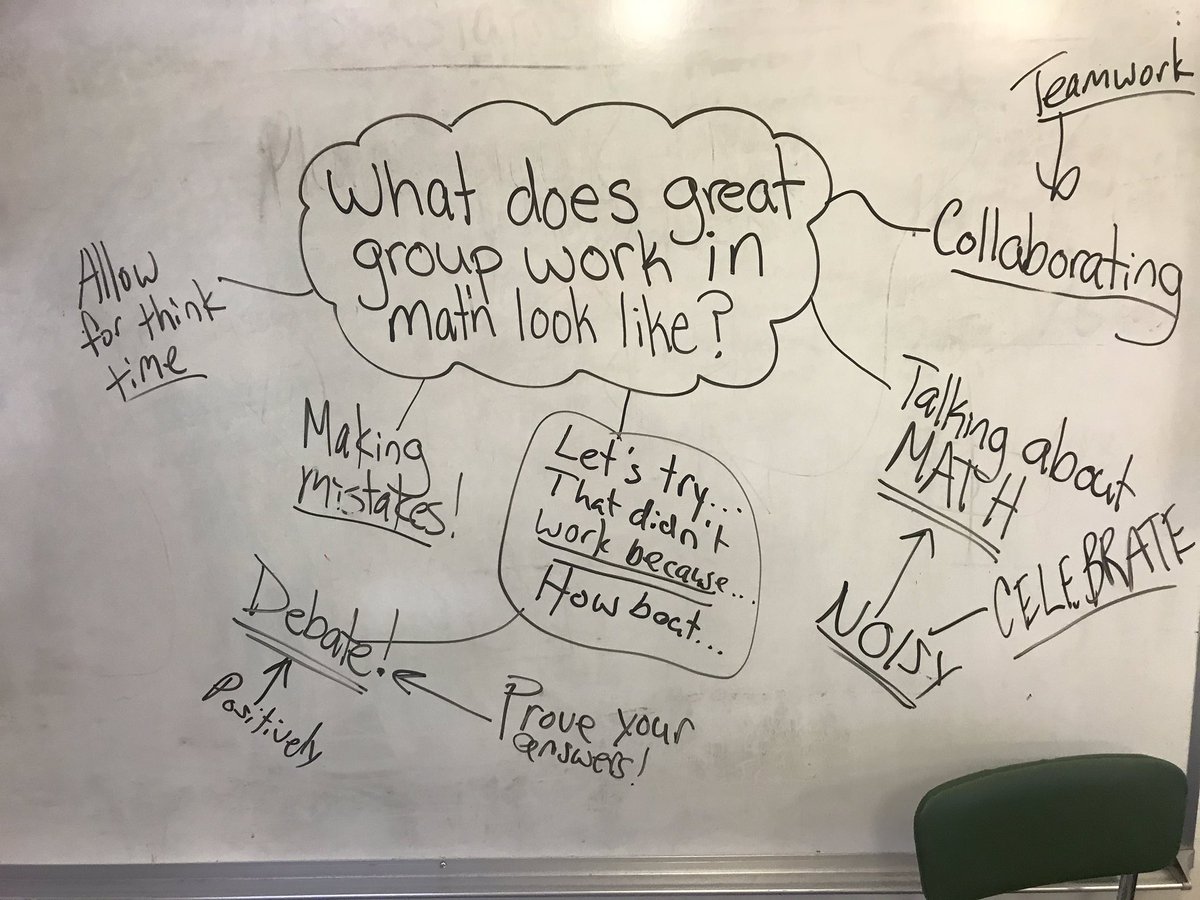 What does great
group work in
math look like?
Teamwork
Collaborating
Allow
for think
time
Making
mistakes!
Let's try...
That didn't
work because...
How bout...
Talking about
MATH
NOISY
CELEBRATE
Debate!
Positively
Prove your
answers!